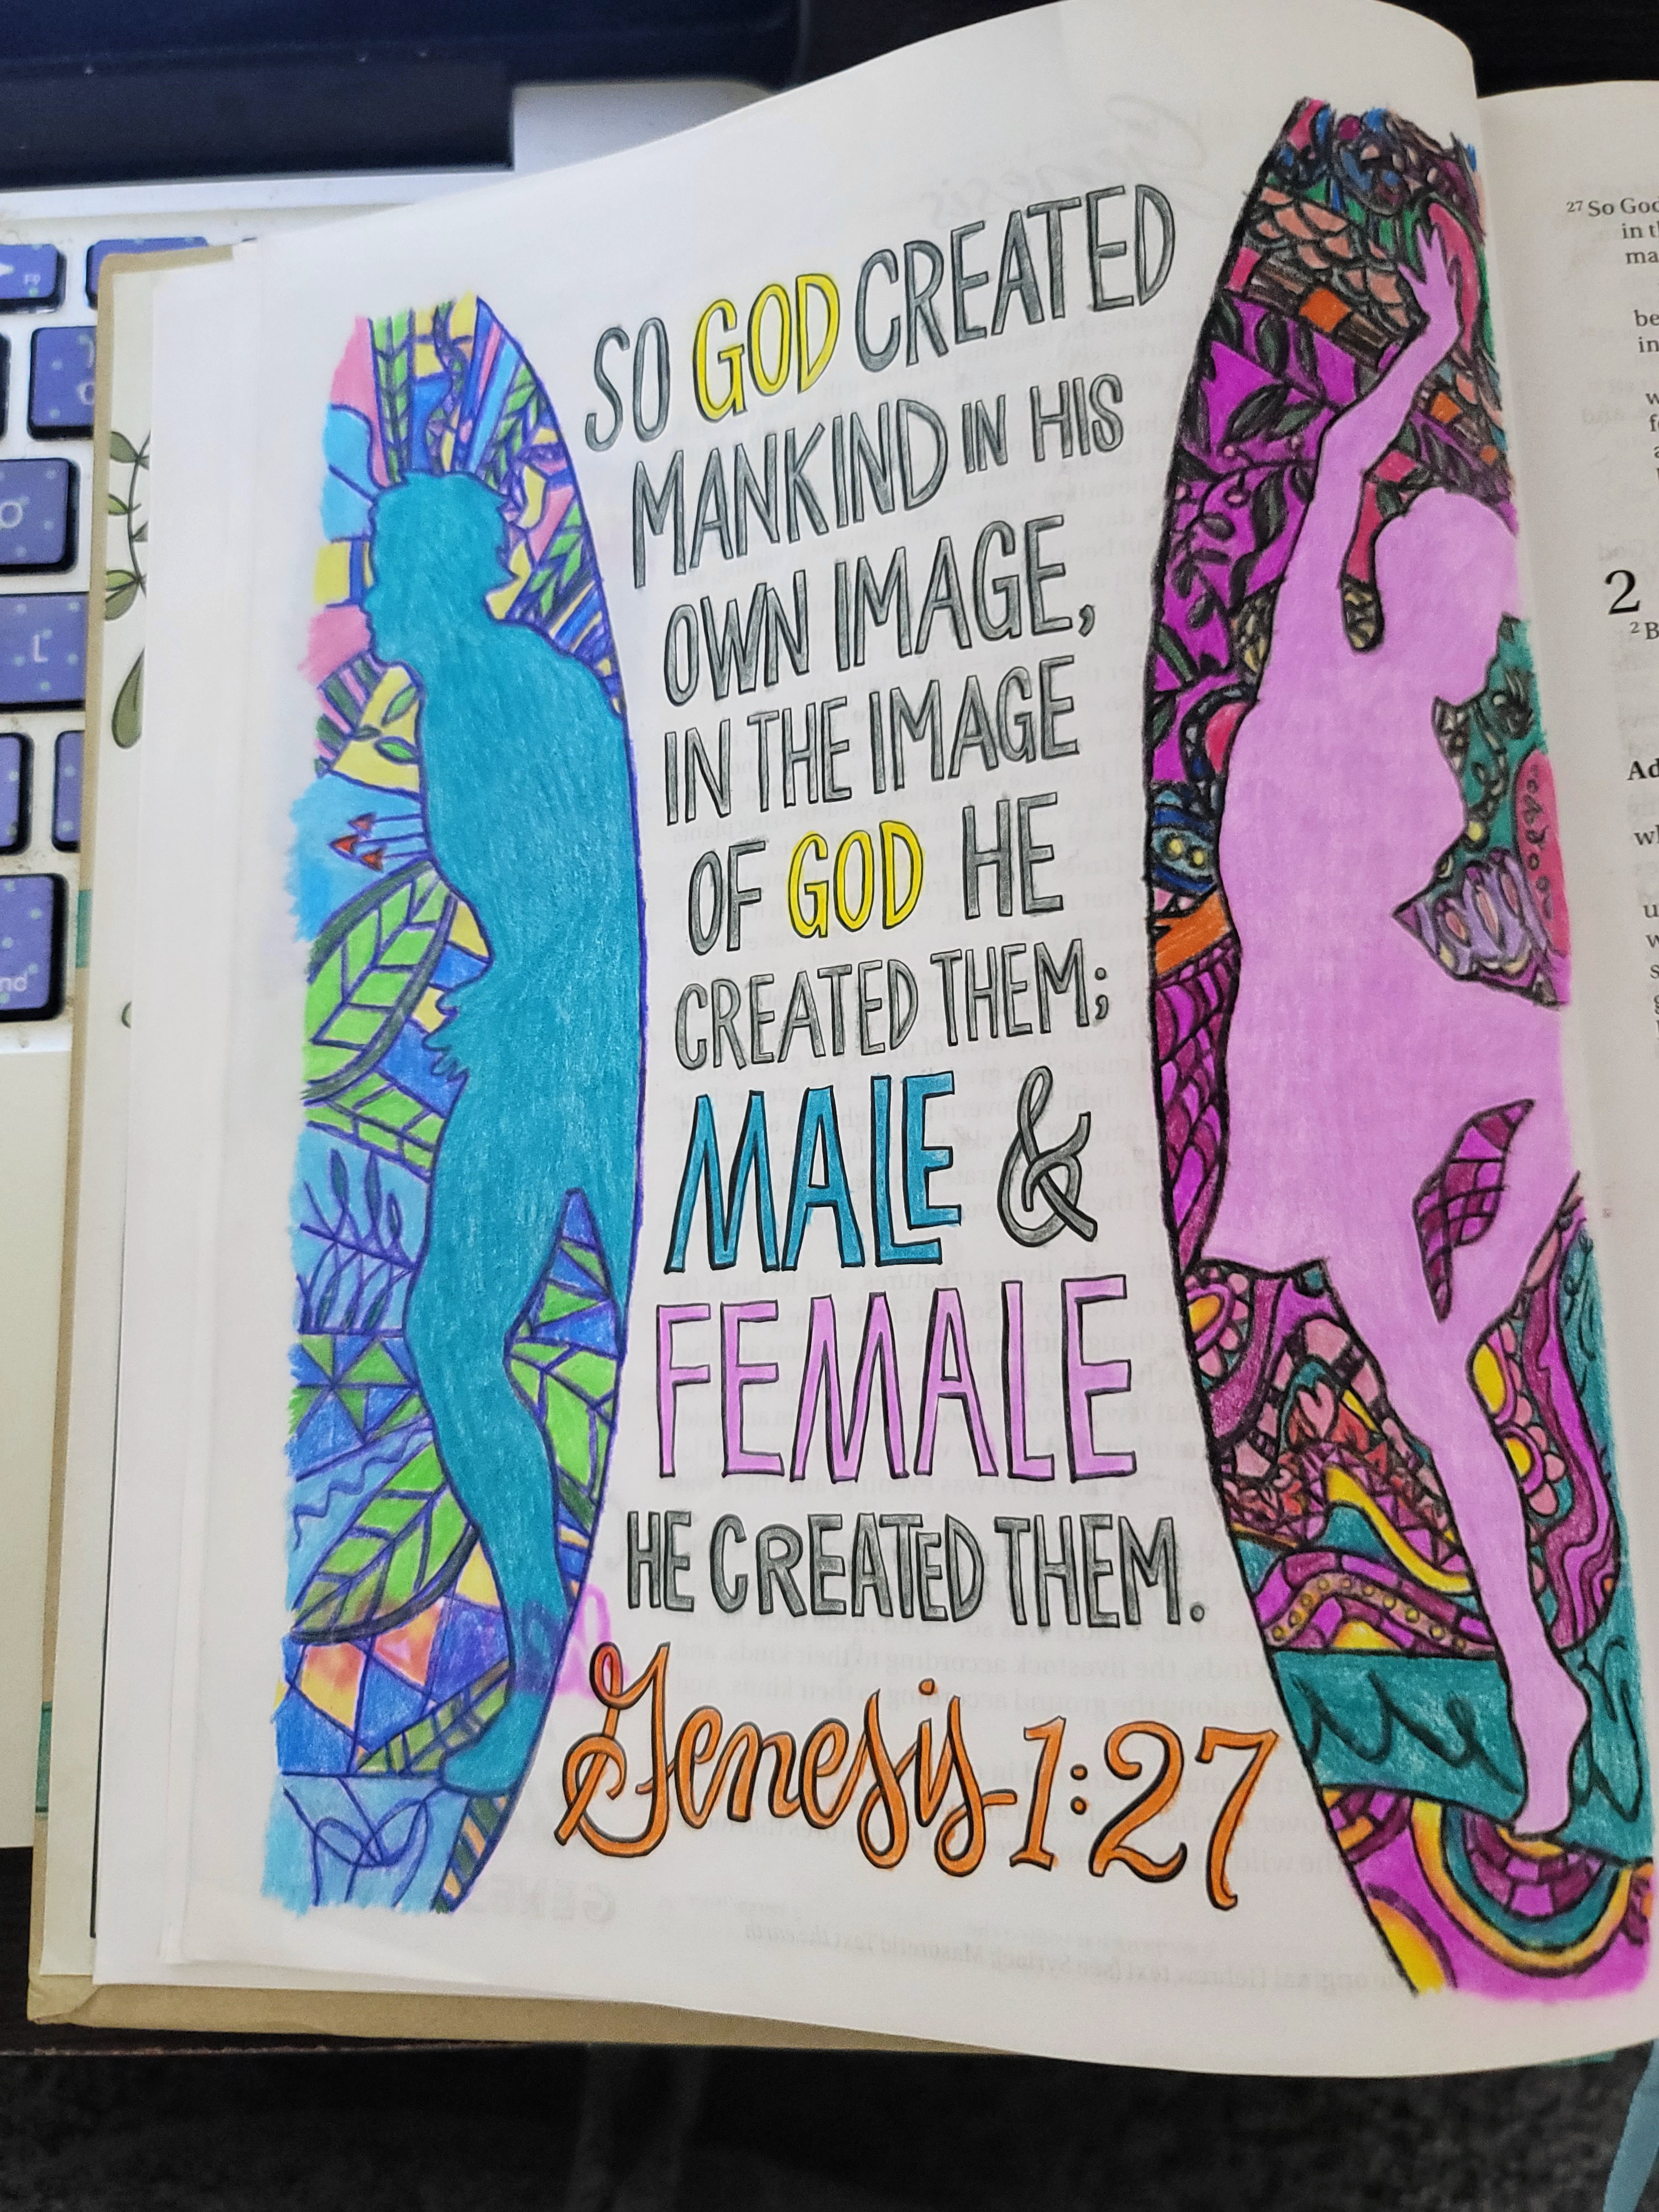 SO GOD CREATED
MANKIND IN HIS
OWN IMAGE,
IN THE IMAGE
OF GOD HE
CREATED THEM;
MALE &
FEMALE
HE CREATED THEM.
Genesis 1:27
27 So God
in t
ma
be
in
w
2
2 B
Ad
wh
u
w
s
g
F9
O
L